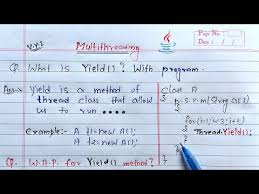 Page No.
Date :
V.V.I
Multithreading
Q. What is Yield()? With program.
Ans→ Yield is a method of
thread class that allow
us to run ----
Example:- A t1=new A();
A t2=new A();
class A
{
p.s.v.m(String ar[])
{
for(i=1;i<3;i++)
{
Thread.Yield();
}
}
}
Q. W.A.P. for Yield() method?